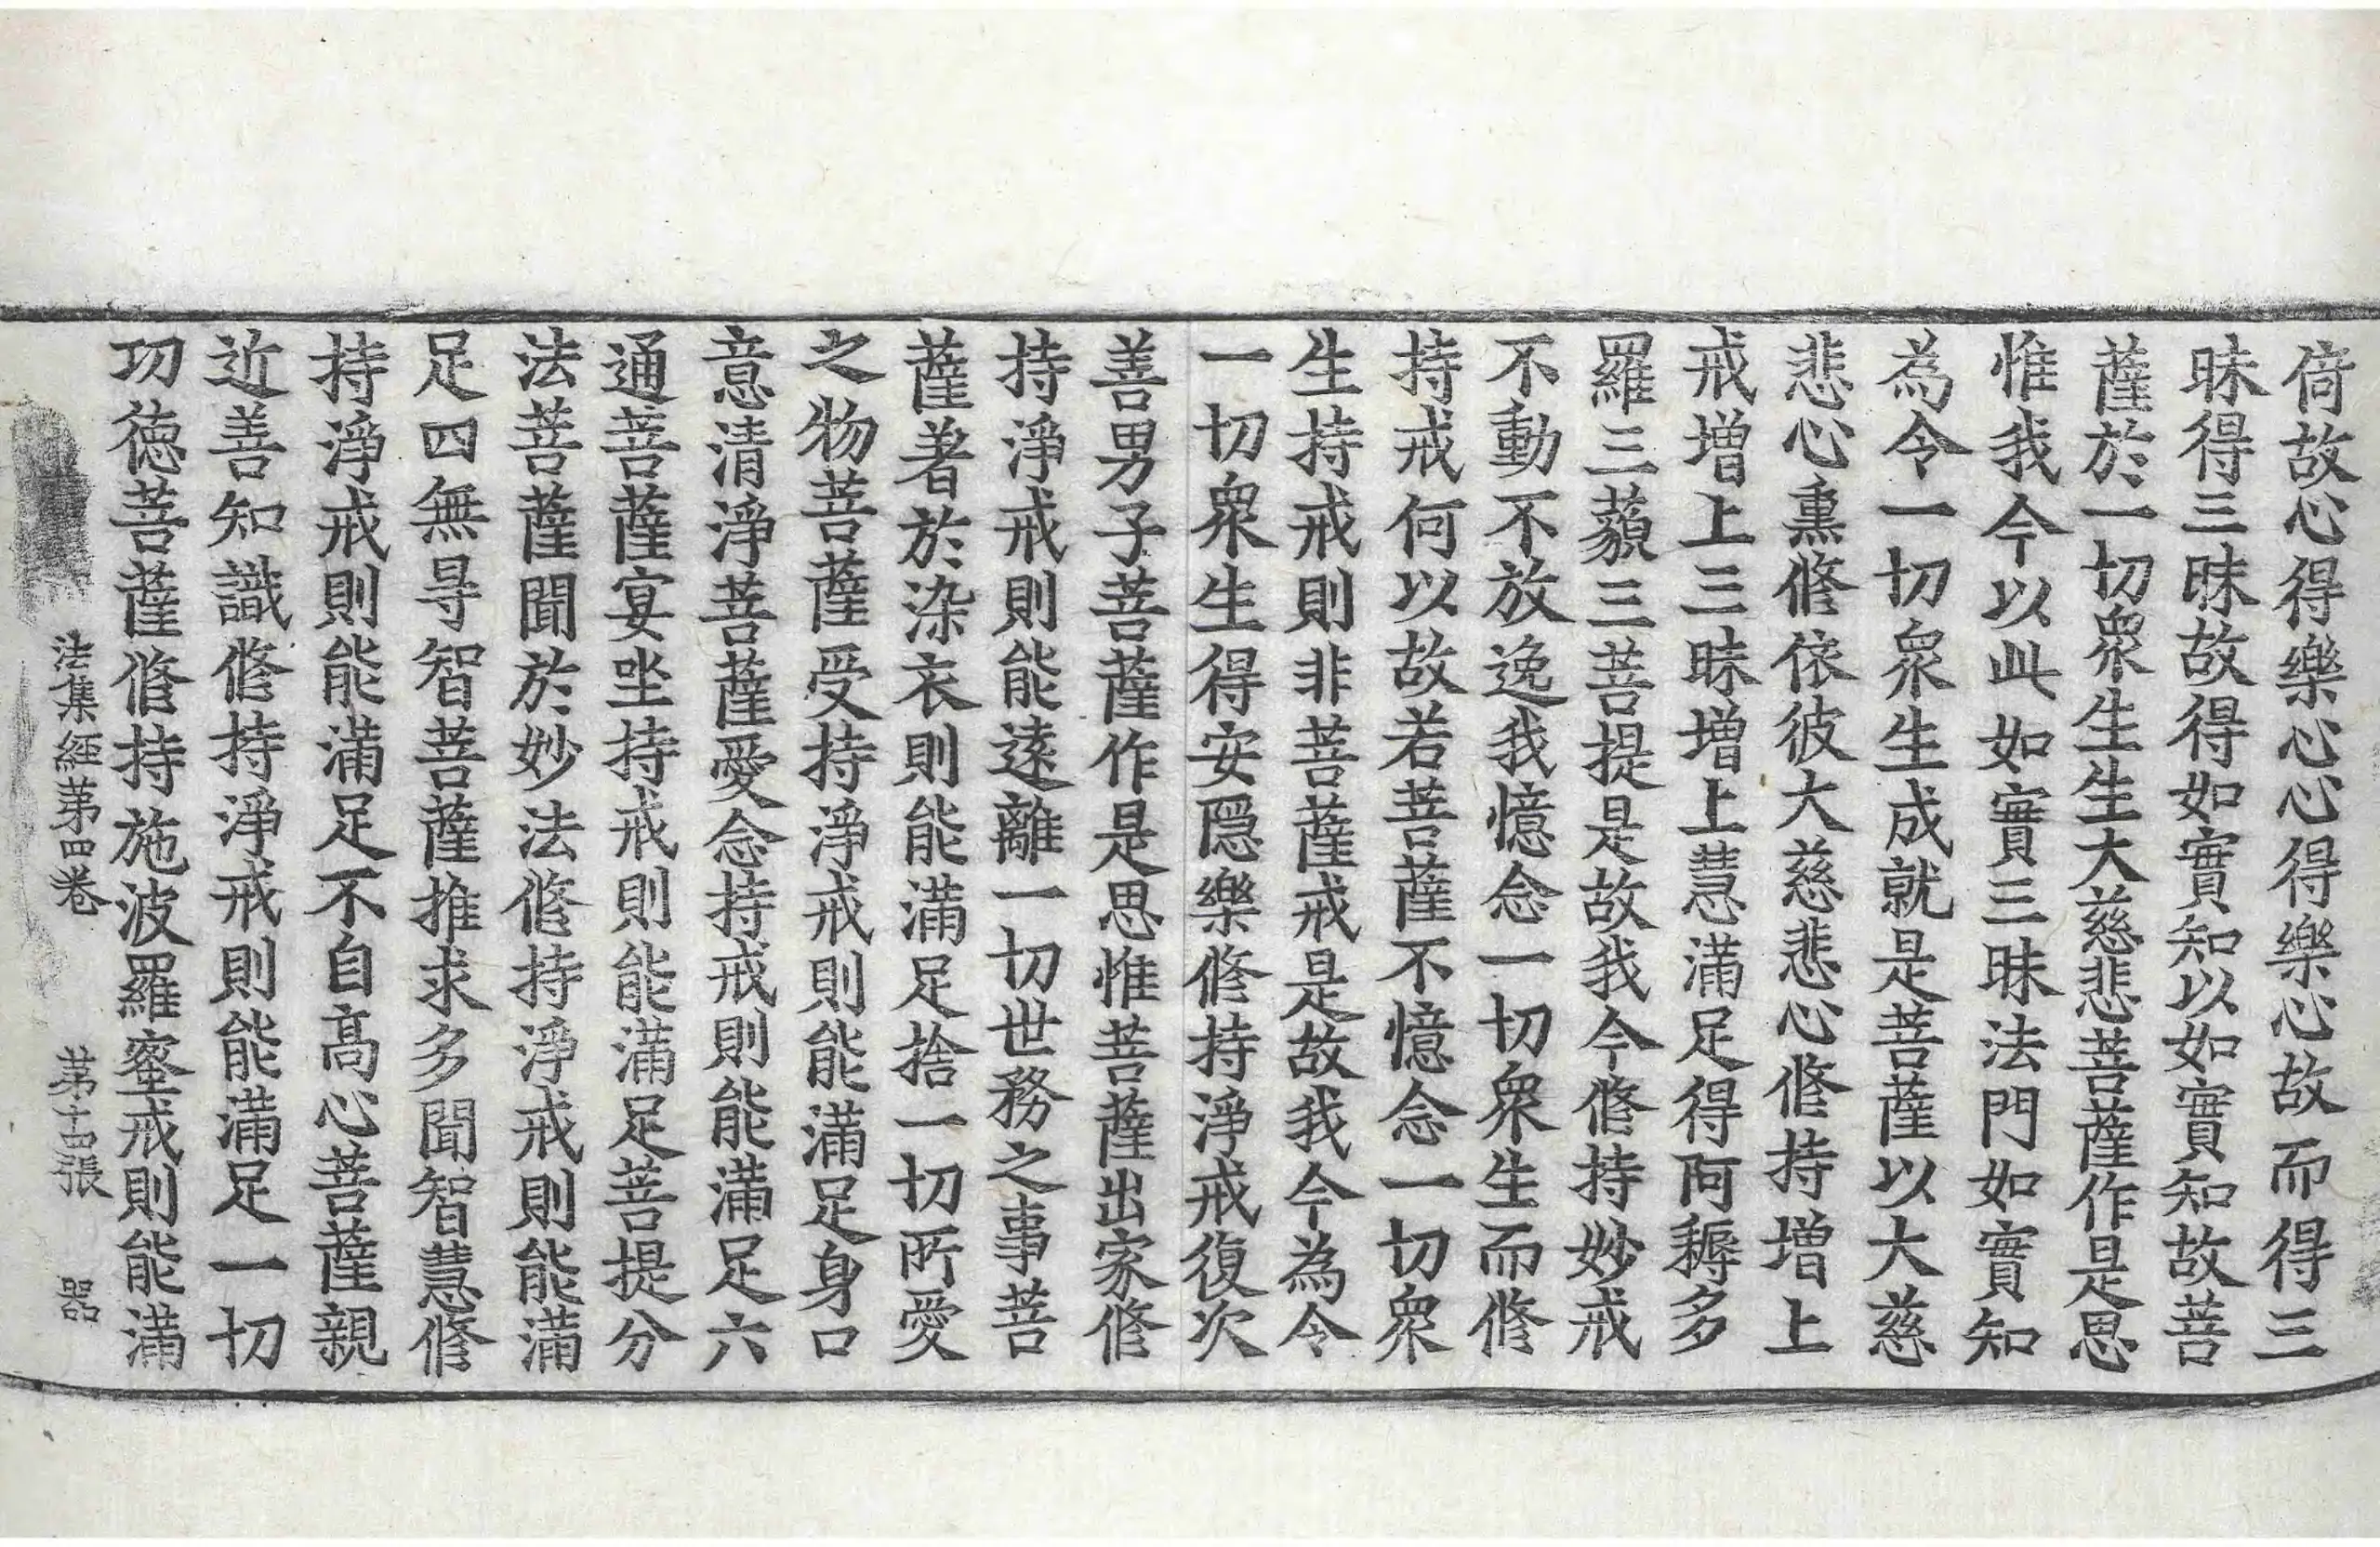 倚故心得樂心心得樂心故而得三
昧得三昧故得如實知以如實知故菩
薩於一切衆生生大慈悲菩薩作是思
惟我今以此如實三昧法門如實知
為令一切衆生成就是菩薩以大慈
悲心熏修依彼大慈悲心修持增上
戒增上三昧增上慧滿足得阿耨多
羅三藐三菩提是故我今修持妙戒
不動不放逸我憶念一切衆生而修
持戒何以故若菩薩不憶念一切衆
生持戒則非菩薩戒是故我今為令
一切衆生得安隱樂修持淨戒復次
善男子菩薩作是思惟菩薩出家修
持淨戒則能遠離一切世務之事菩
薩著於染衣則能滿足捨一切所愛
之物菩薩受持淨戒則能滿足身口
意清淨菩薩愛念持戒則能滿足六
通菩薩宴坐持戒則能滿足菩提分
法菩薩聞於妙法修持淨戒則能滿
足四無㝵智菩薩推求多聞智慧修
持淨戒則能滿足不自高心菩薩親
近善知識修持淨戒則能滿足一切
功德菩薩修持施波羅蜜戒則能滿
法集經第四卷 第十四張 器